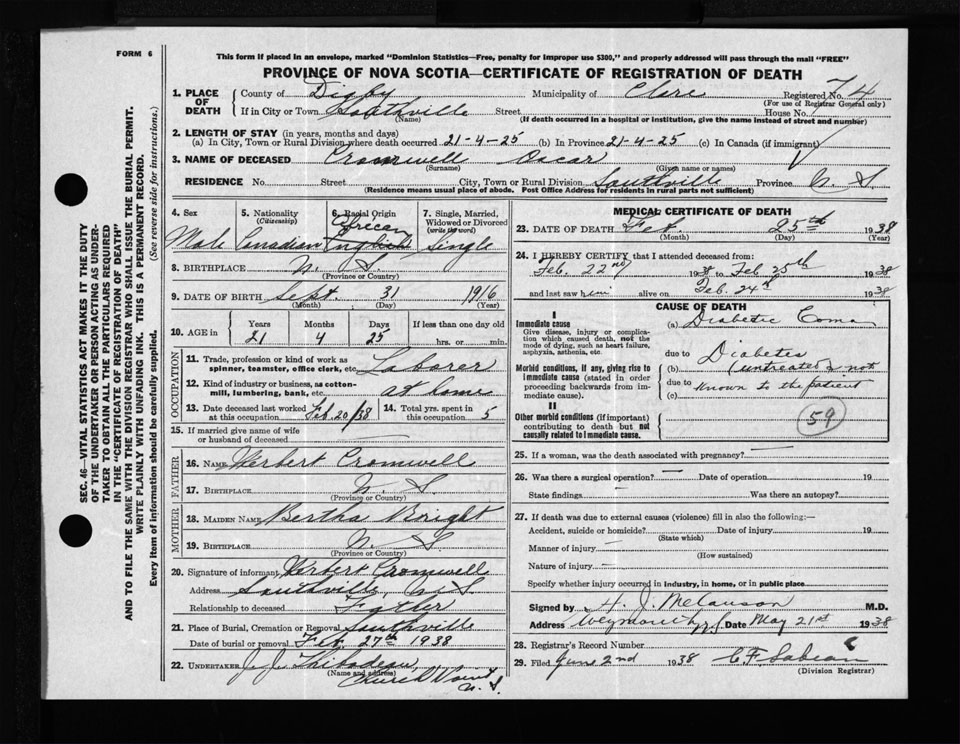 FORM 6
This form if placed in an envelope, marked "Dominion Statistics—Free, penalty for improper use $300," and properly addressed will pass through the mail "FREE"
PROVINCE OF NOVA SCOTIA—CERTIFICATE OF REGISTRATION OF DEATH
1. PLACE OF DEATH County of Digby Municipality of Clare Registered No. 74
(For use of Registrar General only)
If in City or Town Southville Street House No.
(Name) (If death occurred in a hospital or institution, give the name instead of street and number)
2. LENGTH OF STAY (in years, months and days)
(a) In City, Town or Rural Division where death occurred 21-4-25 (b) In Province 21-4-25 (c) In Canada (if immigrant)
3. NAME OF DECEASED Cromwell Oscar
(Surname) (Given name or names)
RESIDENCE No. Street City, Town or Rural Division Southville Province N. S.
(Residence means usual place of abode. Post Office Address for residents in rural parts not sufficient)
4. Sex 5. Nationality (Citizenship) 6. Racial Origin 7. Single, Married, Widowed or Divorced (write the word)
African
Male Canadian English Single
8. BIRTHPLACE N. S.
(Province or Country)
9. DATE OF BIRTH Sept. 31 1916
(Month) (Day) (Year)
10. AGE in Years Months Days If less than one day old
21 4 25 hrs. or min.
OCCUPATION
11. Trade, profession or kind of work as spinner, teamster, office clerk, etc. Laborer
12. Kind of industry or business, as cotton-mill, lumbering, bank, etc. at home
13. Date deceased last worked at this occupation Feb 20/38 14. Total yrs. spent in this occupation 5
15. If married give name of wife or husband of deceased
FATHER
16. NAME Herbert Cromwell
17. BIRTHPLACE N. S.
(Province or Country)
MOTHER
18. MAIDEN NAME Bertha Bright
19. BIRTHPLACE N. S.
(Province or Country)
20. Signature of informant Herbert Cromwell
Address Southville, N. S.
Relationship to deceased Father
21. Place of Burial, Cremation or Removal Southville
Date of burial or removal Feb. 27th 1938
22. UNDERTAKER J. J. Thibodeau
(Name and address)
Church Point
N. S.
MEDICAL CERTIFICATE OF DEATH
23. DATE OF DEATH Feb. 25th 1938
(Month) (Day) (Year)
24. I HEREBY CERTIFY that I attended deceased from:
Feb. 22nd 1938 to Feb 25th 1938
and last saw him alive on Feb. 24th 1938
CAUSE OF DEATH
I
Immediate cause (a) Diabetic Coma
Give disease, injury or complication which caused death, not the mode of dying, such as heart failure, asphyxia, asthenia, etc.
due to Diabetes
Morbid conditions, if any, giving rise to immediate cause (stated in order proceeding backwards from immediate cause).
(b) (untreated & not
due to known to the patient
(c)
II
Other morbid conditions (if important) contributing to death but not causally related to immediate cause.
59
25. If a woman, was the death associated with pregnancy? —
26. Was there a surgical operation? — Date of operation 19
State findings — Was there an autopsy?
27. If death was due to external causes (violence) fill in also the following:—
Accident, suicide or homicide? Date of injury 19
(State which)
Manner of injury —
(How sustained)
Nature of injury —
Specify whether injury occurred in industry, in home, or in public place
Signed by H. J. M.D.
Address Weymouth N.S. Date May 21st 1938
28. Registrar's Record Number
29. Filed June 2nd 1938 C F Sabean
(Division Registrar)
SEC. 46—VITAL STATISTICS ACT MAKES IT THE DUTY
OF THE UNDERTAKER OR PERSON ACTING AS UNDER-
TAKER TO OBTAIN ALL THE PARTICULARS REQUIRED
IN THE "CERTIFICATE OF REGISTRATION OF DEATH"
AND TO FILE THE SAME WITH THE DIVISION REGISTRAR WHO SHALL ISSUE THE BURIAL PERMIT.
WRITE PLAINLY WITH UNFADING INK. THIS IS A PERMANENT RECORD.
Every item of information should be carefully supplied. (See reverse side for instructions.)